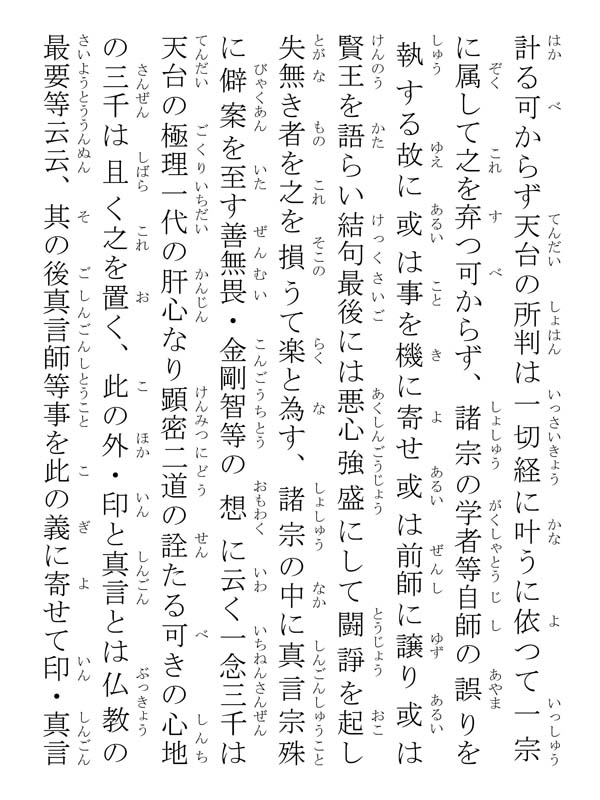 計る可からず天台の所判は一切経に叶うに依つて一宗
に属して之を弃つ可からず、諸宗の学者等自師の誤りを
執する故に或は事を機に寄せ或は前師に譲り或は
賢王を語らい結句最後には悪心強盛にして闘諍を起し
失無き者を之を損うて楽と為す、諸宗の中に真言宗殊
に僻案を至す善無畏・金剛智等の想に云く一念三千は
天台の極理一代の肝心なり顕密二道の詮たる可きの心地
の三千は且く之を置く、此の外・印と真言とは仏教の
最要等云云、其の後真言師等事を此の義に寄せて印・真言